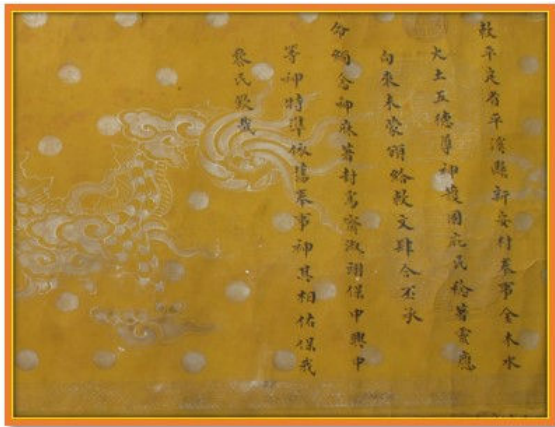 敕平定省平溪縣新安村奉事金木水
火土五德尊神護國庇民稔著靈應
向來未蒙頒給敕文肆今丕承
命緬念神庥著封為齋淑翊保中興中
等神特準依舊奉事神其相佑保我
黎民欽哉